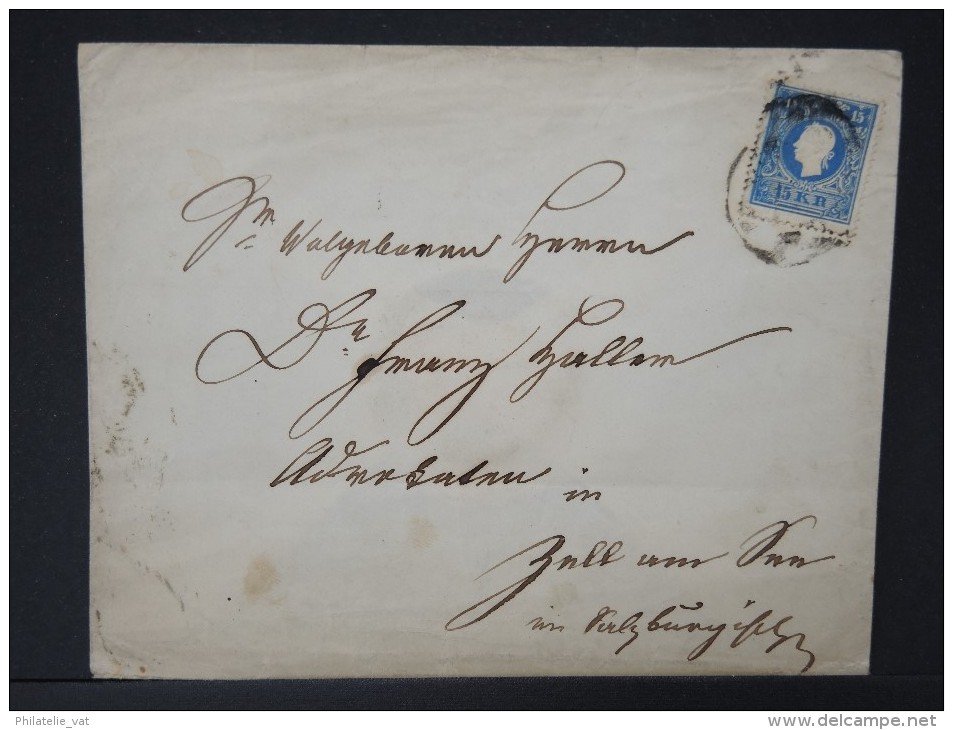 15
15 KR
Sr Wolgeboren Herrn
Dr Franz Haller
Advokaten in
Zell am See
im Salzburgisch
Philatelie_vat
www.delcampe.net